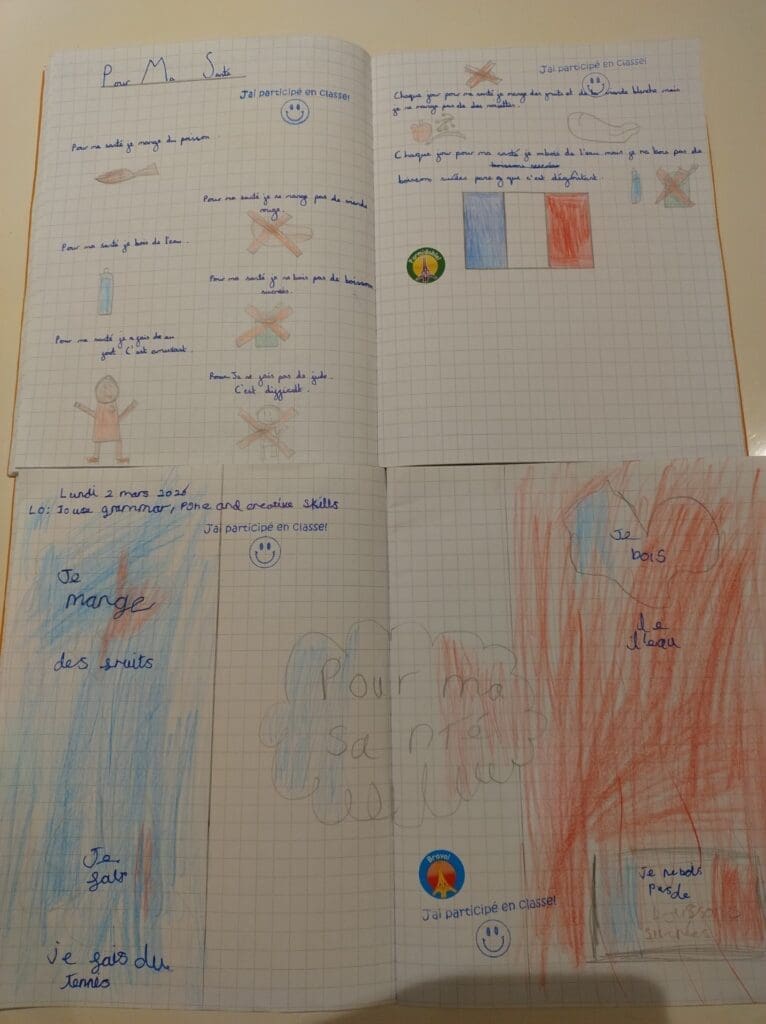 Pour Ma Santé
J'ai participé en classe!
Pour ma santé je mange du poisson.
Pour ma santé je ne mange pas de viande
rouge.
Pour ma santé je bois de l'eau.
Pour ma santé je ne bois pas de boissons
sucrées.
Pour ma santé je fais de
C'est amusant.
Je ne fais pas de judo.
C'est difficult.
J'ai participé en classe!
Chaque jour pour ma santé je mange des fruits et de la viande blanche mais
je ne mange pas de des noisettes.
Chaque jour pour ma santé je bois de l'eau mais je ne bois pas de
boissons sucrées
boissons sucées parce que c'est dégoûtant.
Formidable!
Lundi 2 mars 2026
LO: To use grammar, and creative skills
J'ai participé en classe!
Je
mange
des fruits
Je
fais
je fais du
tennis
Pour ma
santé
Je
bois
de
l'eau
Bravo!
J'ai participé en classe!
Je ne bois
pas de
boissons
sucrées